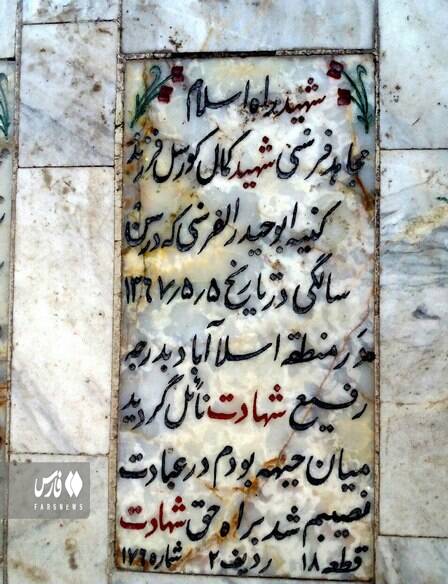 شهید براه اسلام
مجاهد فرنسی شهید کمال کورسل فرزند
کنیه ابوحیدر الفرنسی که در سن
سالگی در تاریخ ۱۳۶۷/۵/۵
در منطقه اسلام‌آباد بدرجه
رفیع شهادت نائل گردید
میان جبهه بودم در عبادت
نصیبم شد براه حق شهادت
قطعه ۱۸ ردیف ۲ شماره ۱۷۶
فارس
FARSNEWS